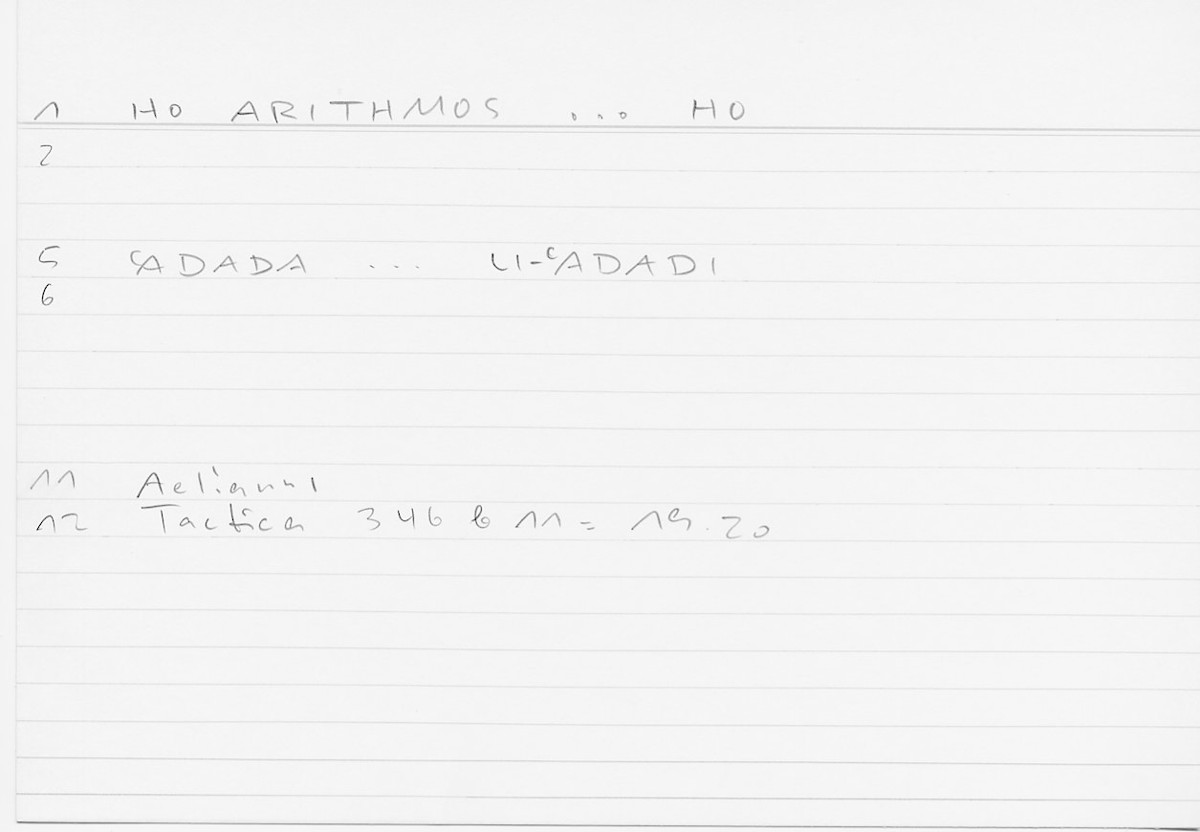 1 HO ARITHMOS ... HO
2
5 ʿADADA ... LI-ʿADADI
6
11 Aelianus
12 Tactica 346 b 11 = 19.20